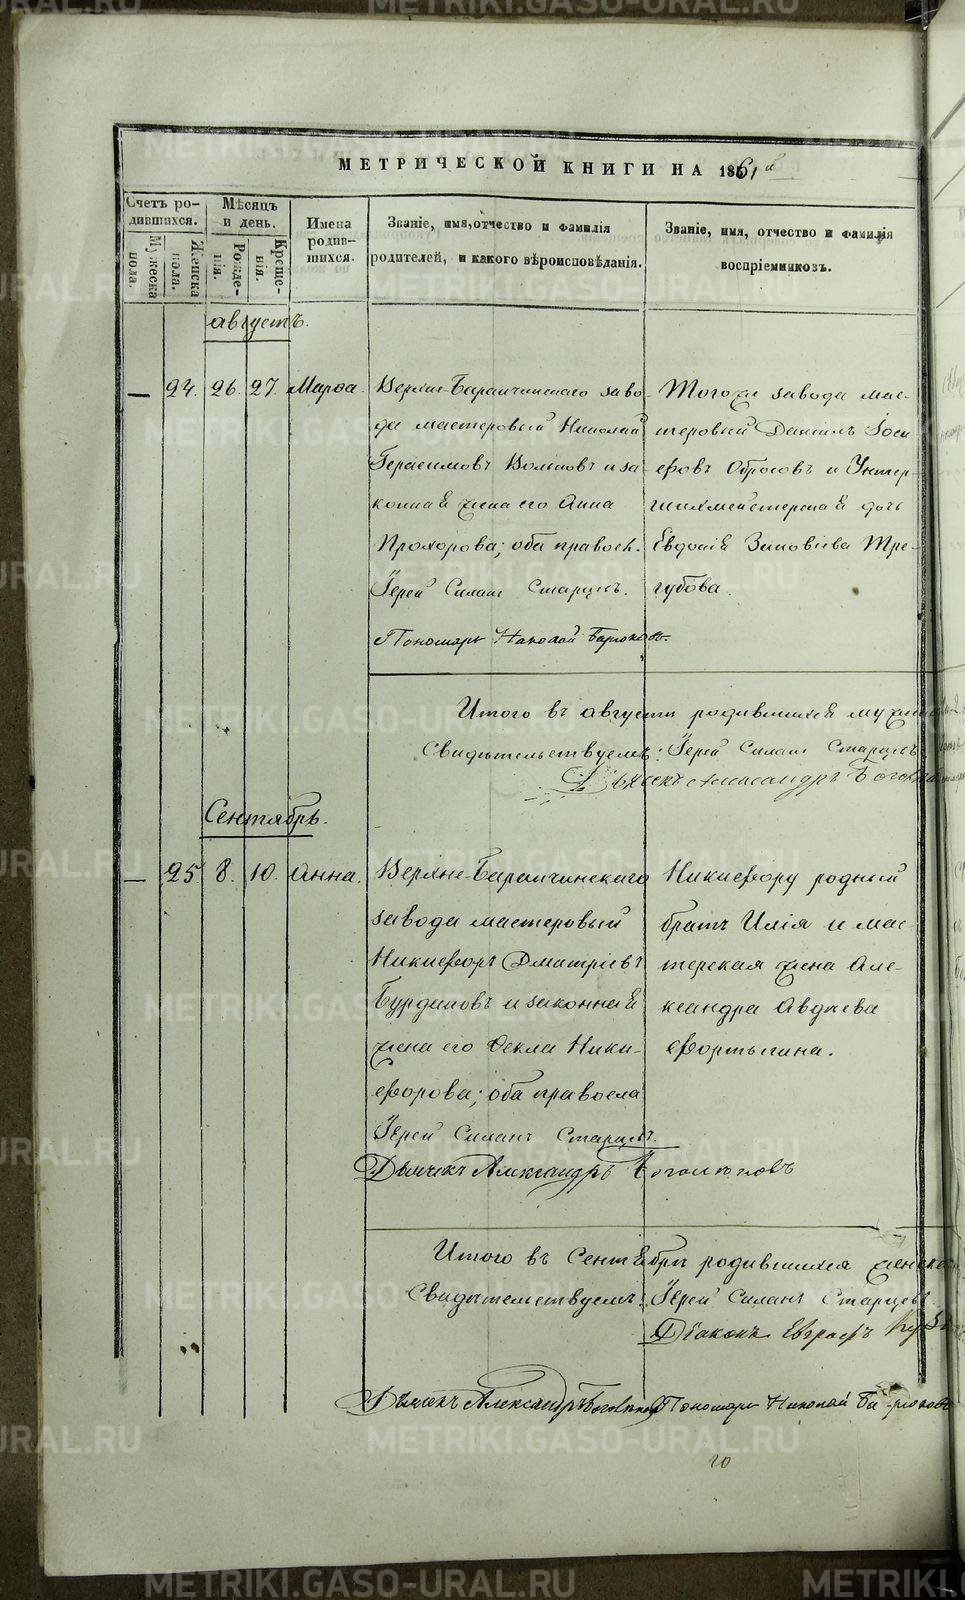 МЕТРИЧЕСКОЙ КНИГИ НА 1861й
Счетъ ро-
дившихся.
Мѣсяцъ
и день.
Мужеска
пола.
Женска
пола.
Рожде-
нія.
Креще-
нія.
Имена
родив-
шихся.
Званіе, имя, отчество и фамилія
родителей, и какого вѣроисповѣданія.
Званіе, имя, отчество и фамилія
воспріемниковъ.
августъ.
— 24. 26. 27. Марѳа.
Верхне-Баранчинскаго заво-
да мастеровый Николай
Герасимовъ Волковъ и за-
конная жена его Анна
Прохорова; оба правосл.
Іерей Силанъ Старцевъ.
Пономарь Николай
Тогоже завода мас-
теровый Даніилъ Іоси
фовъ Обросовъ и Унтер-
шихмейстерская дочь
Евдокія Зиновіева Тре-
губова.
Итого въ августѣ родившихся
Свидѣтельствуемъ: Іерей Силанъ Старцевъ
Дьячекъ Александръ
Сентябрь.
— 25. 8. 10. Анна.
Верхне-Баранчинскаго
завода мастеровый
Никифоръ Дмитріевъ
Бурдаковъ и законная
жена его Ѳекла Ники-
форова; оба правосла
Іерей Силанъ Старцевъ.
Дьячекъ Александръ Боголюповъ
Никифору родный
братъ Илія и мас-
терская жена Але-
ксандра Авдѣева
Фортыгина.
Итого въ Сентябрѣ родившихся женска
Свидѣтельствуемъ: Іерей Силанъ Старцевъ
Діаконъ Евграфъ
Дьячекъ Александръ Пономарь Николай
20
METRIKI.GASO-URAL.RU